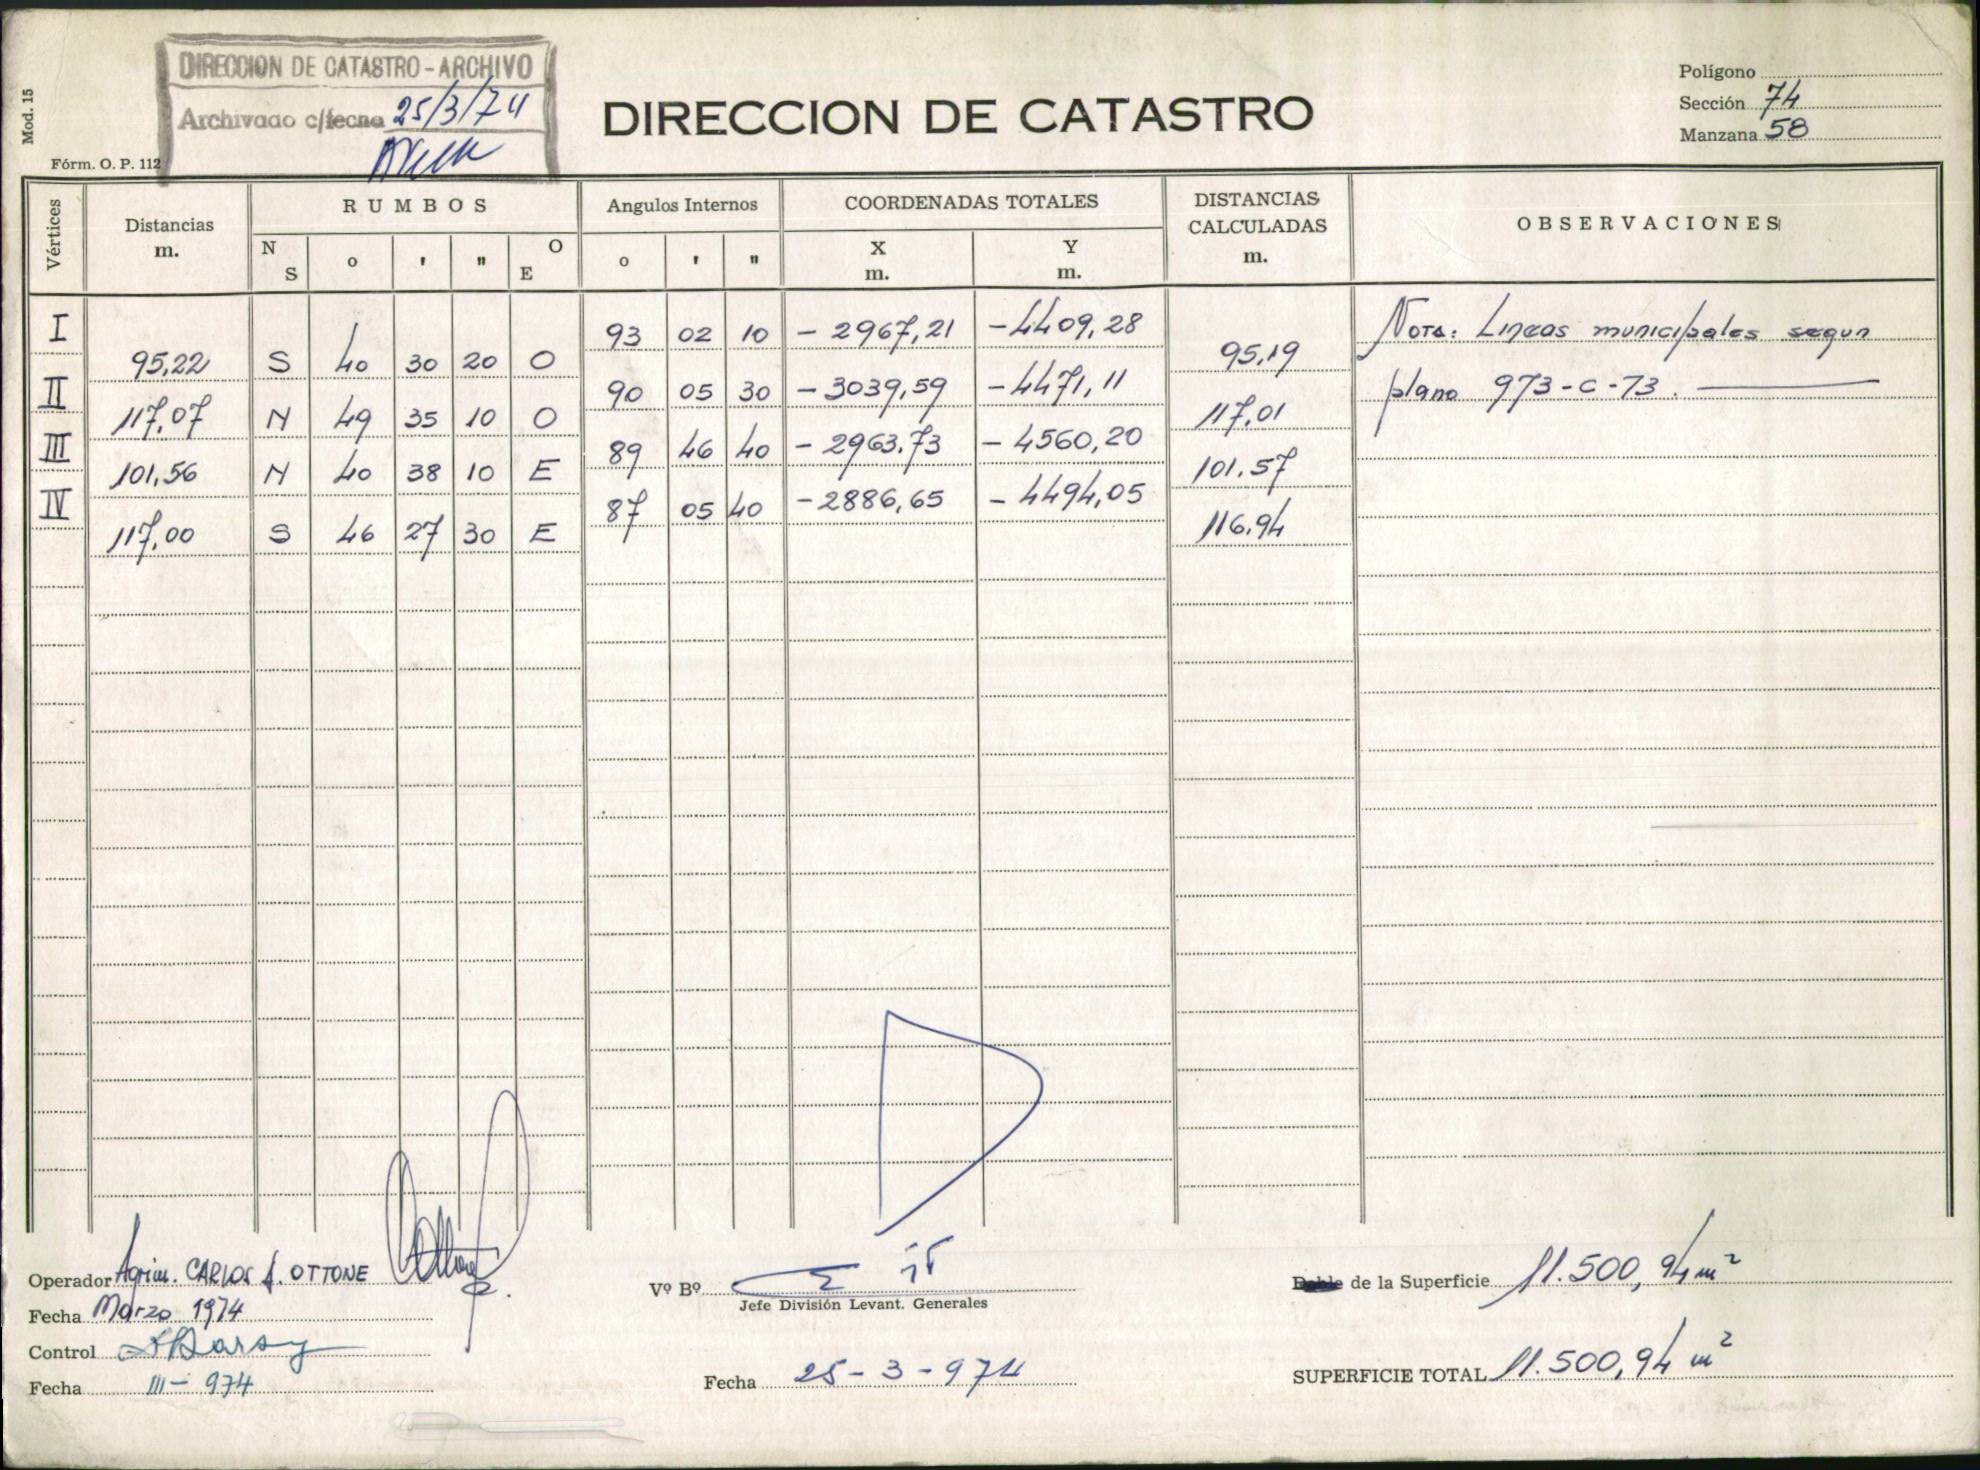 DIRECCION DE CATASTRO - ARCHIVO
Archivado c/fecha 25/3/74
Mod. 15
Fórm. O. P. 112
DIRECCION DE CATASTRO
Polígono
Sección 74
Manzana 58
Vértices
Distancias
m.
RUMBOS
N S o ' " O E
Angulos Internos
o ' "
COORDENADAS TOTALES
X
m.
Y
m.
DISTANCIAS
CALCULADAS
m.
OBSERVACIONES
I 93 02 10 - 2967,21 - 4409,28
95,22 S 40 30 20 O 95,19
II 90 05 30 - 3039,59 - 4471,11
117,07 N 49 35 10 O 117,01
III 89 46 40 - 2963.73 - 4560,20
101,56 N 40 38 10 E 101.57
IV 87 05 40 - 2886,65 - 4494,05
117,00 S 46 27 30 E 116.94
Nota: Lineas municipales segun
plano 973-C-73.
Operador Agrim. CARLOS J. OTTONE
Fecha Marzo 1974
Control
Fecha III - 974
Vº Bº
Jefe División Levant. Generales
Fecha 25-3-974
Doble de la Superficie 11.500,94 m²
SUPERFICIE TOTAL 11.500,94 m²